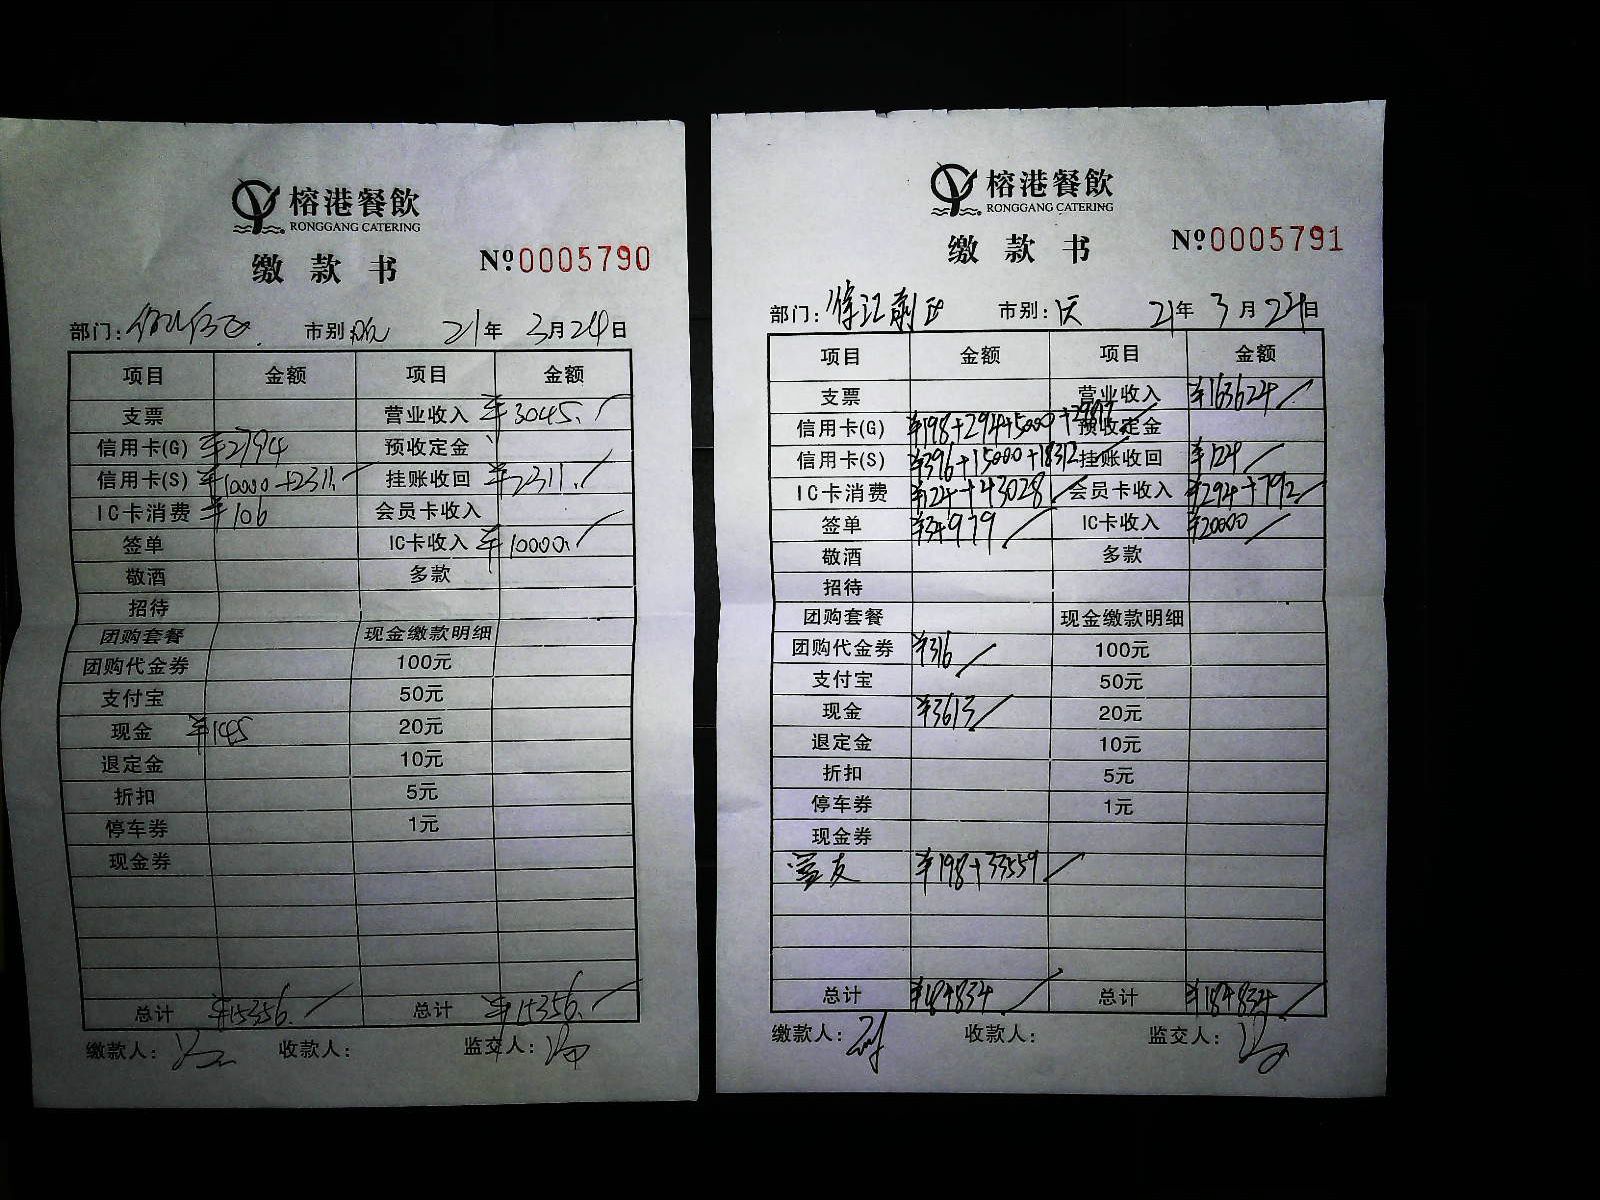 榕港餐飲
RONGGANG CATERING
缴款书 №0005790
部门: 市别: 晚 21年 3月24日
项目 金额 项目 金额
支票 营业收入 ¥3045.
信用卡(G) ¥2794 预收定金
信用卡(S) ¥10000+2311. 挂账收回 ¥2311.
IC卡消费 ¥106 会员卡收入
签单 IC卡收入 ¥10000.
敬酒 多款
招待
团购套餐 现金缴款明细
团购代金券 100元
支付宝 50元
现金 ¥145 20元
退定金 10元
折扣 5元
停车券 1元
现金券
总计 ¥15356. 总计 ¥15356.
缴款人: 收款人: 监交人:
榕港餐飲
RONGGANG CATERING
缴款书 №0005791
部门: 市别: 21年 3月24日
项目 金额 项目 金额
支票 营业收入 ¥163624
信用卡(G) ¥198+294+5000+29817 预收定金
信用卡(S) ¥396+15000+18312 挂账收回 ¥124
IC卡消费 ¥124+43028 会员卡收入 ¥294+792
签单 ¥34979 IC卡收入 ¥20000
敬酒 多款
招待
团购套餐 现金缴款明细
团购代金券 ¥316 100元
支付宝 50元
现金 ¥3613 20元
退定金 10元
折扣 5元
停车券 1元
现金券
富友 ¥198+33559
总计 ¥184834 总计 ¥184834
缴款人: 收款人: 监交人: